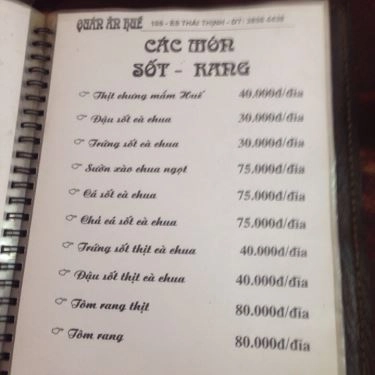 QUÁN ĂN HUẾ 105 - E5 THÁI THỊNH - ĐT:
CÁC MÓN
SỐT - RANG
Thịt chưng mắm Huế 40.000đ/đĩa
Đậu sốt cà chua 30.000đ/đĩa
Trứng sốt cà chua 30.000đ/đĩa
Sườn xào chua ngọt 75.000đ/đĩa
Cá sốt cà chua 75.000đ/đĩa
Chả cá sốt cà chua 75.000đ/đĩa
Trứng sốt thịt cà chua 40.000đ/đĩa
Đậu sốt thịt cà chua 40.000đ/đĩa
Tôm rang thịt 80.000đ/đĩa
Tôm rang 80.000đ/đĩa